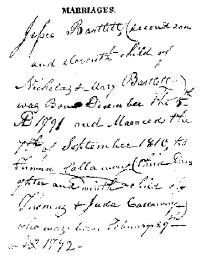 MARRIAGES.
Jesse Bartlett (second son
and eleventh child of
Nicholas & Mary Bartlett)
was Born December the 5th
AD 1791 and Maraed the
7th of September 1810, to
Callaway (Third Dau
ghter and ninth child of
Thomas & Juda Callaway)
who was born February 29th
AD 1792